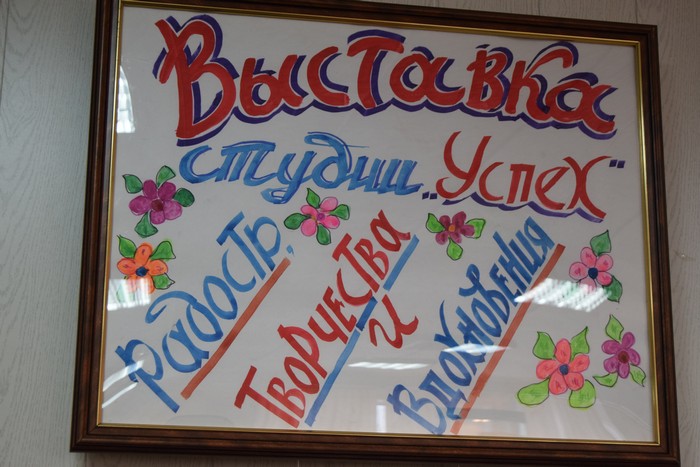 Выставка
студии „Успех"
радость,
Творчества
и
Вдохновения